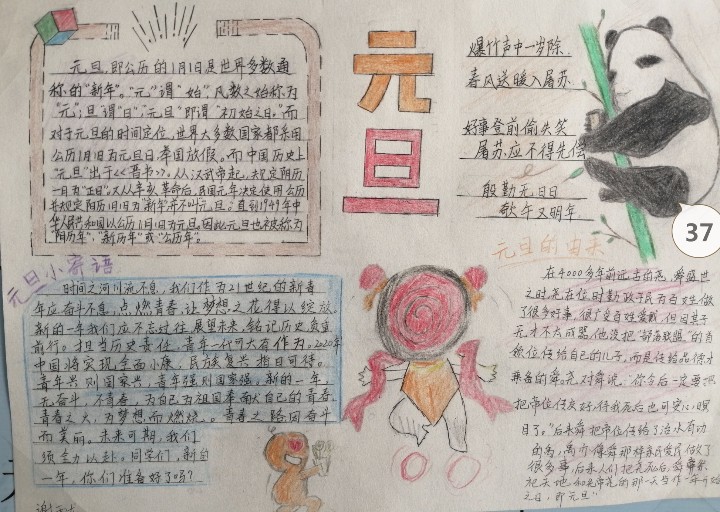 元旦,即公历的1月1日是世界多数通
称的"新年"。"元"谓"始",凡数之始称为
"元";旦谓"日";"元旦"即谓"初始之日"。而
对于元旦的时间定位,世界大多数国家都采用
公历1月1日为元旦日,举国放假。而中国历史上
"元旦"出于<<晋书>>,从汉武帝起,规定阴历
一月为"正月"。又从辛亥革命后,民国元年决定使用公历
并规定阳历1月1日为"新年"并不叫元旦。"直到1949年中
华人民共和国以公历1月1日为元旦。因此元旦也被称为
"阳历年"、"新历年"或"公历年"。
元旦
爆竹声中一岁除,
春风送暖入屠苏.
好事登前偷失笑
屠苏应不得先偿
殷勤元日日
欹午又明年
37
元旦小寄语
时间之河川流不息,我们作为21世纪的新青
年应奋斗不息,点燃青春,让梦想之花得以绽放.
新的一年我们应不忘过往,展望未来,铭记历史,负重
前行。才担当历史责任,青年一代可大有作为。2020年
中国将实现全面小康,民族复兴指日可待。
青年兴则国家兴,青年强则国家强,新的一年,
无奋斗,不青春,为自己为祖国奉献自己的青春.
青春之火,为梦想而燃烧。青春之路因奋斗
而美丽。未来可期,我们
须全力以赴。同学们,新的
一年,你们准备好了吗?
元旦的由来
在4000多年前远古的尧舜盛世
之时,尧在位时勤政于民为百姓做
了很多好事,很广受百姓爱戴,但因其子
无才不太成器,他没把"部落联盟"的首
领位传给自己的儿子,而是传给品德才
兼备的舜。尧对舜说:"你今后一定要把
把帝位传交好,待我死后也可安心瞑
目了。"后来舜把帝位传给了治水有功
的禹,禹亦像舜那样亲民爱民做了
很多事,后来人们把尧死后,舜
祀天地和先帝尧的那一天当作一年
之日,即元旦"